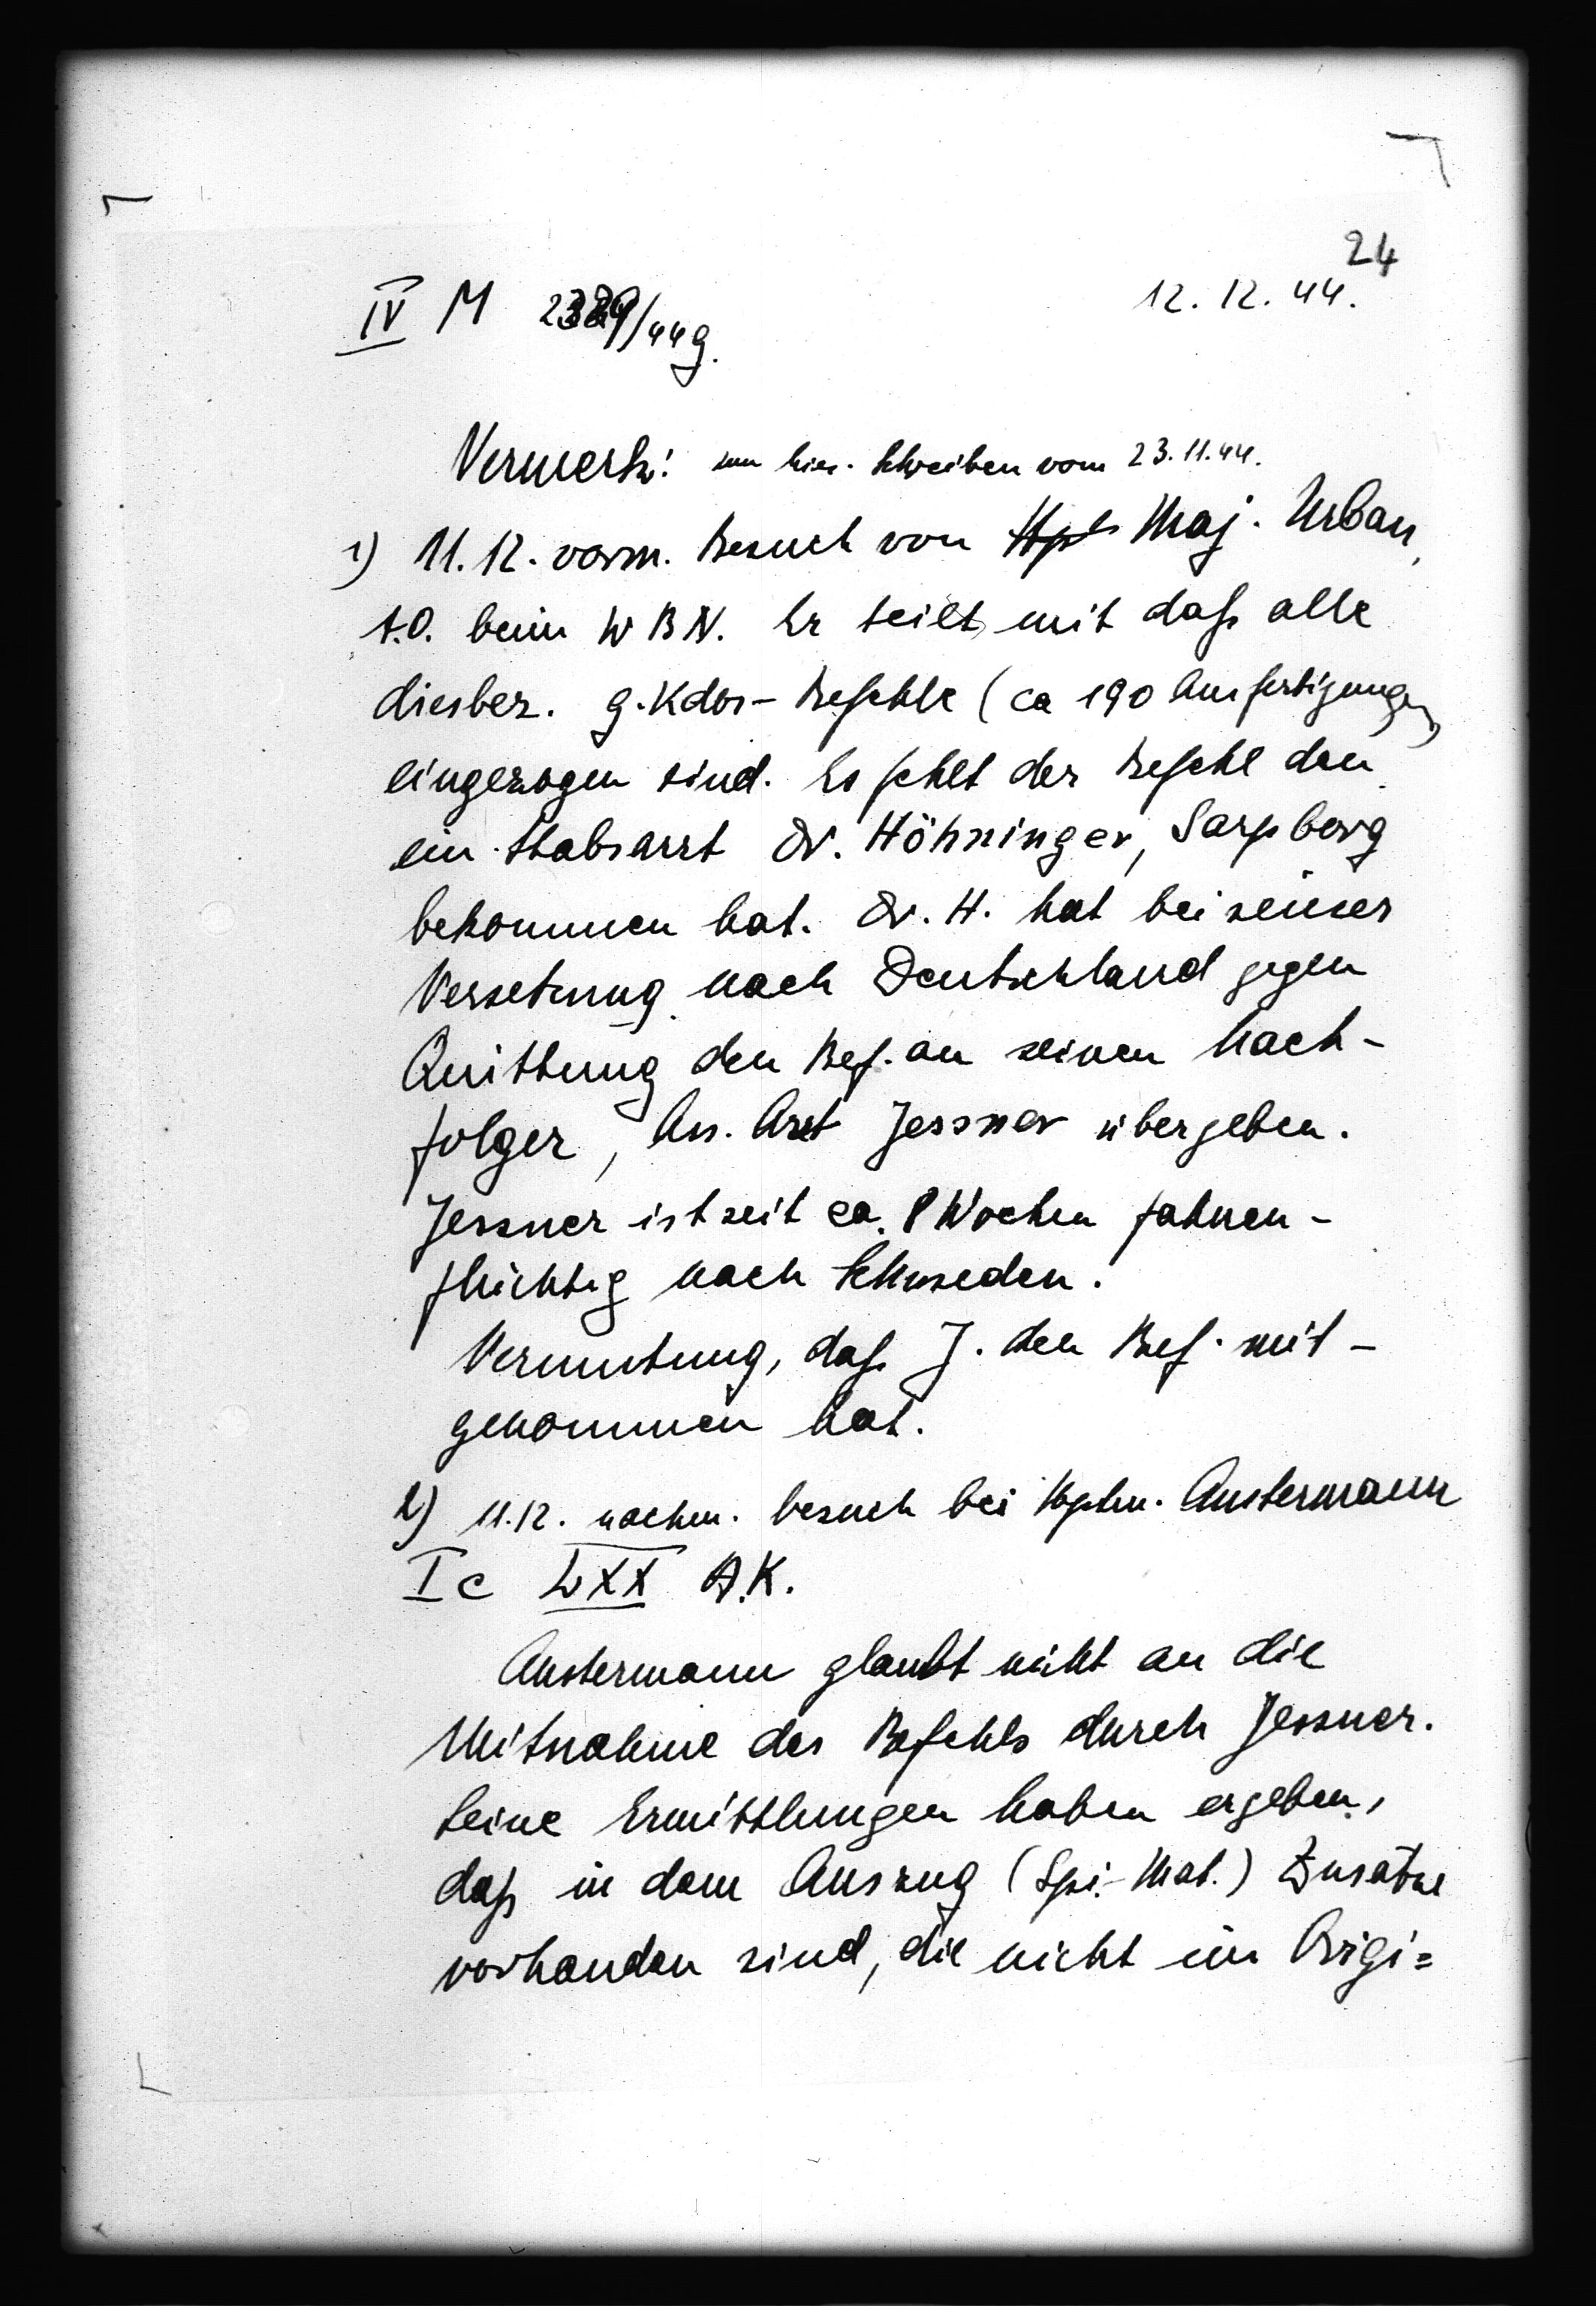 24
12.12.44.
IV M 2389/44g.
Vermerk: zum hies. Schreiben vom 23.11.44.
1) 11.12. vorm. Besuch von Hpt Maj. Urban,
S.O. beim WBN. Er teilt mit daß alle
diesbez. g.Kdos-Befehle (ca 190 Ausfertigungen)
eingezogen sind. Es fehlt der Befehl den
ein Stabsarzt Dr. Höhninger, Sarpsborg
bekommen hat. Dr. H. hat bei seiner
Versetzung nach Deutschland gegen
Quittung den Bef. an seinen Nach-
folger, Ass. Arzt Jessner übergeben.
Jessner ist seit ca. 8 Wochen fahnen-
flüchtig nach Schweden.
Vermutung, daß J. den Bef. mit-
genommen hat.
2) 11.12. nachm. besuch bei Hptm. Austermann
Ic LXX A.K.
Austermann glaubt nicht an die
Mitnahme des Befehls durch Jessner.
Seine Ermittlungen haben ergeben,
daß in dem Auszug (Spi.-Mat.) Zusätze
vorhanden sind, die nicht im Origi=